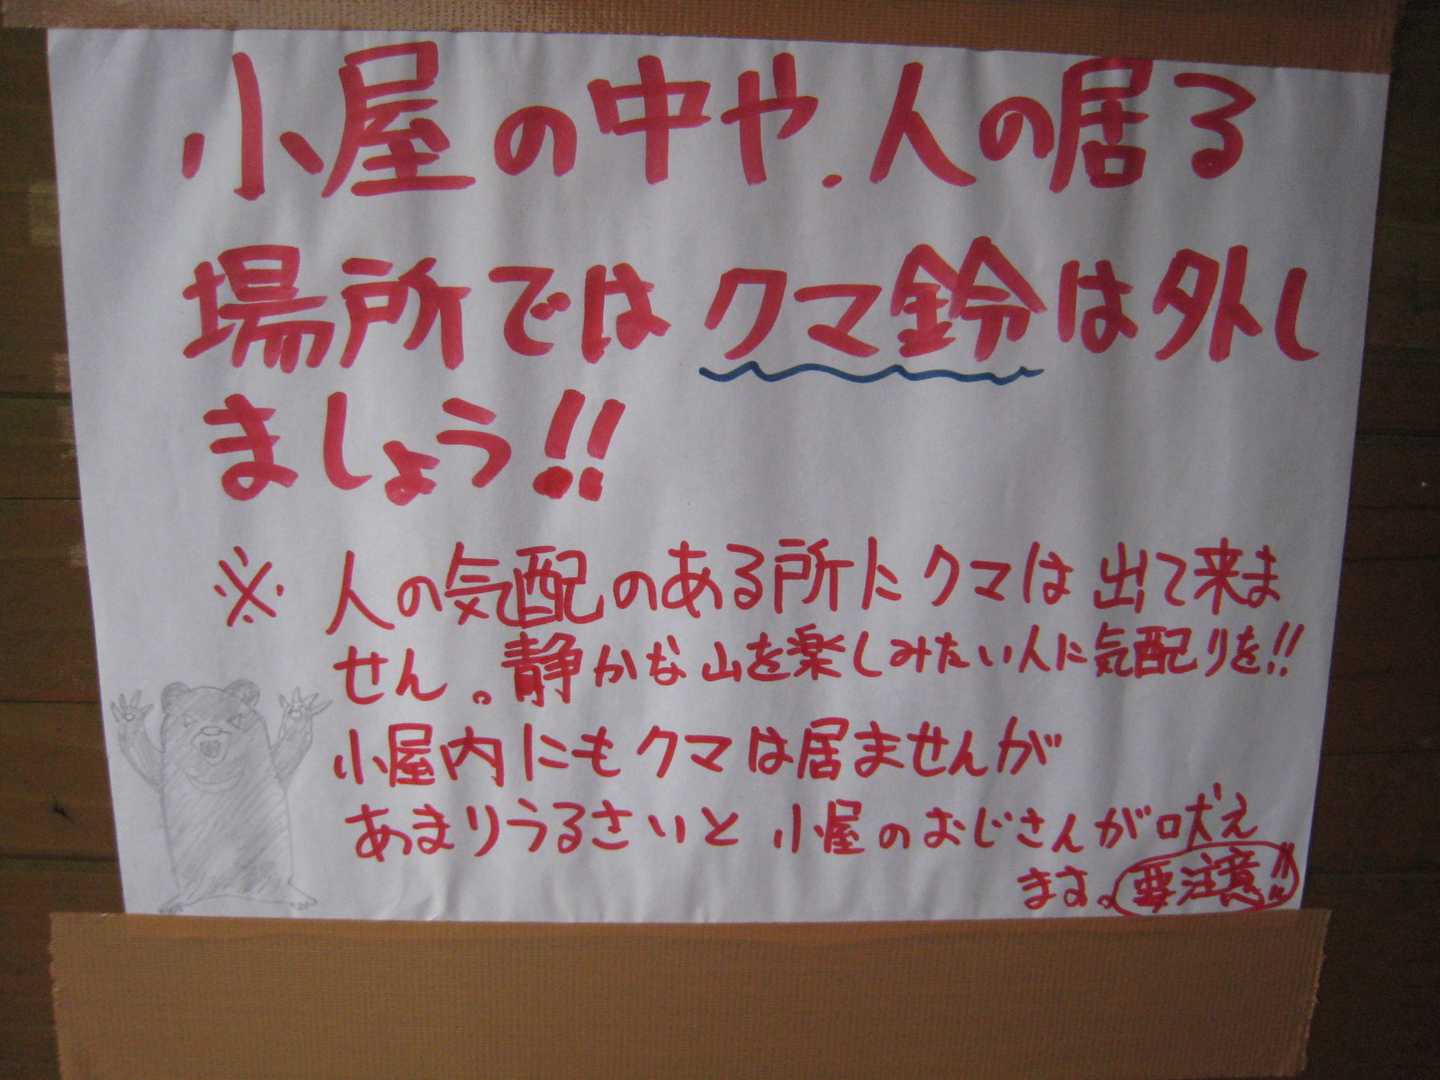 小屋の中や.人の居る
場所ではクマ鈴は外し
ましょう!!
※人の気配のある所にクマは出て来ま
せん。静かな山を楽しみたい人に気配りを!!
小屋内にもクマは居ませんが
あまりうるさいと小屋のおじさんが吠え
ます。要注意!!